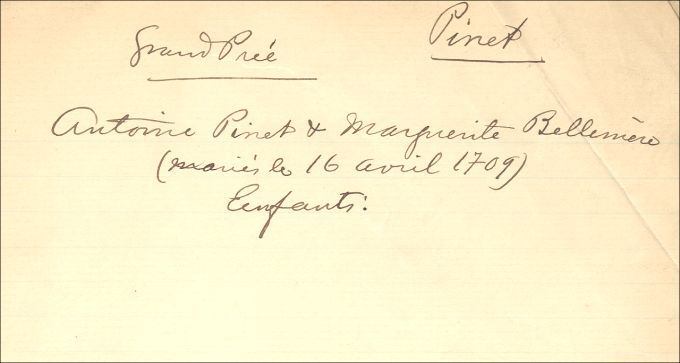 Grand Préé
Pinet
Antoine Pinet & Marguerite Bellemère
(mariés le 16 avril 1709)
Enfants: